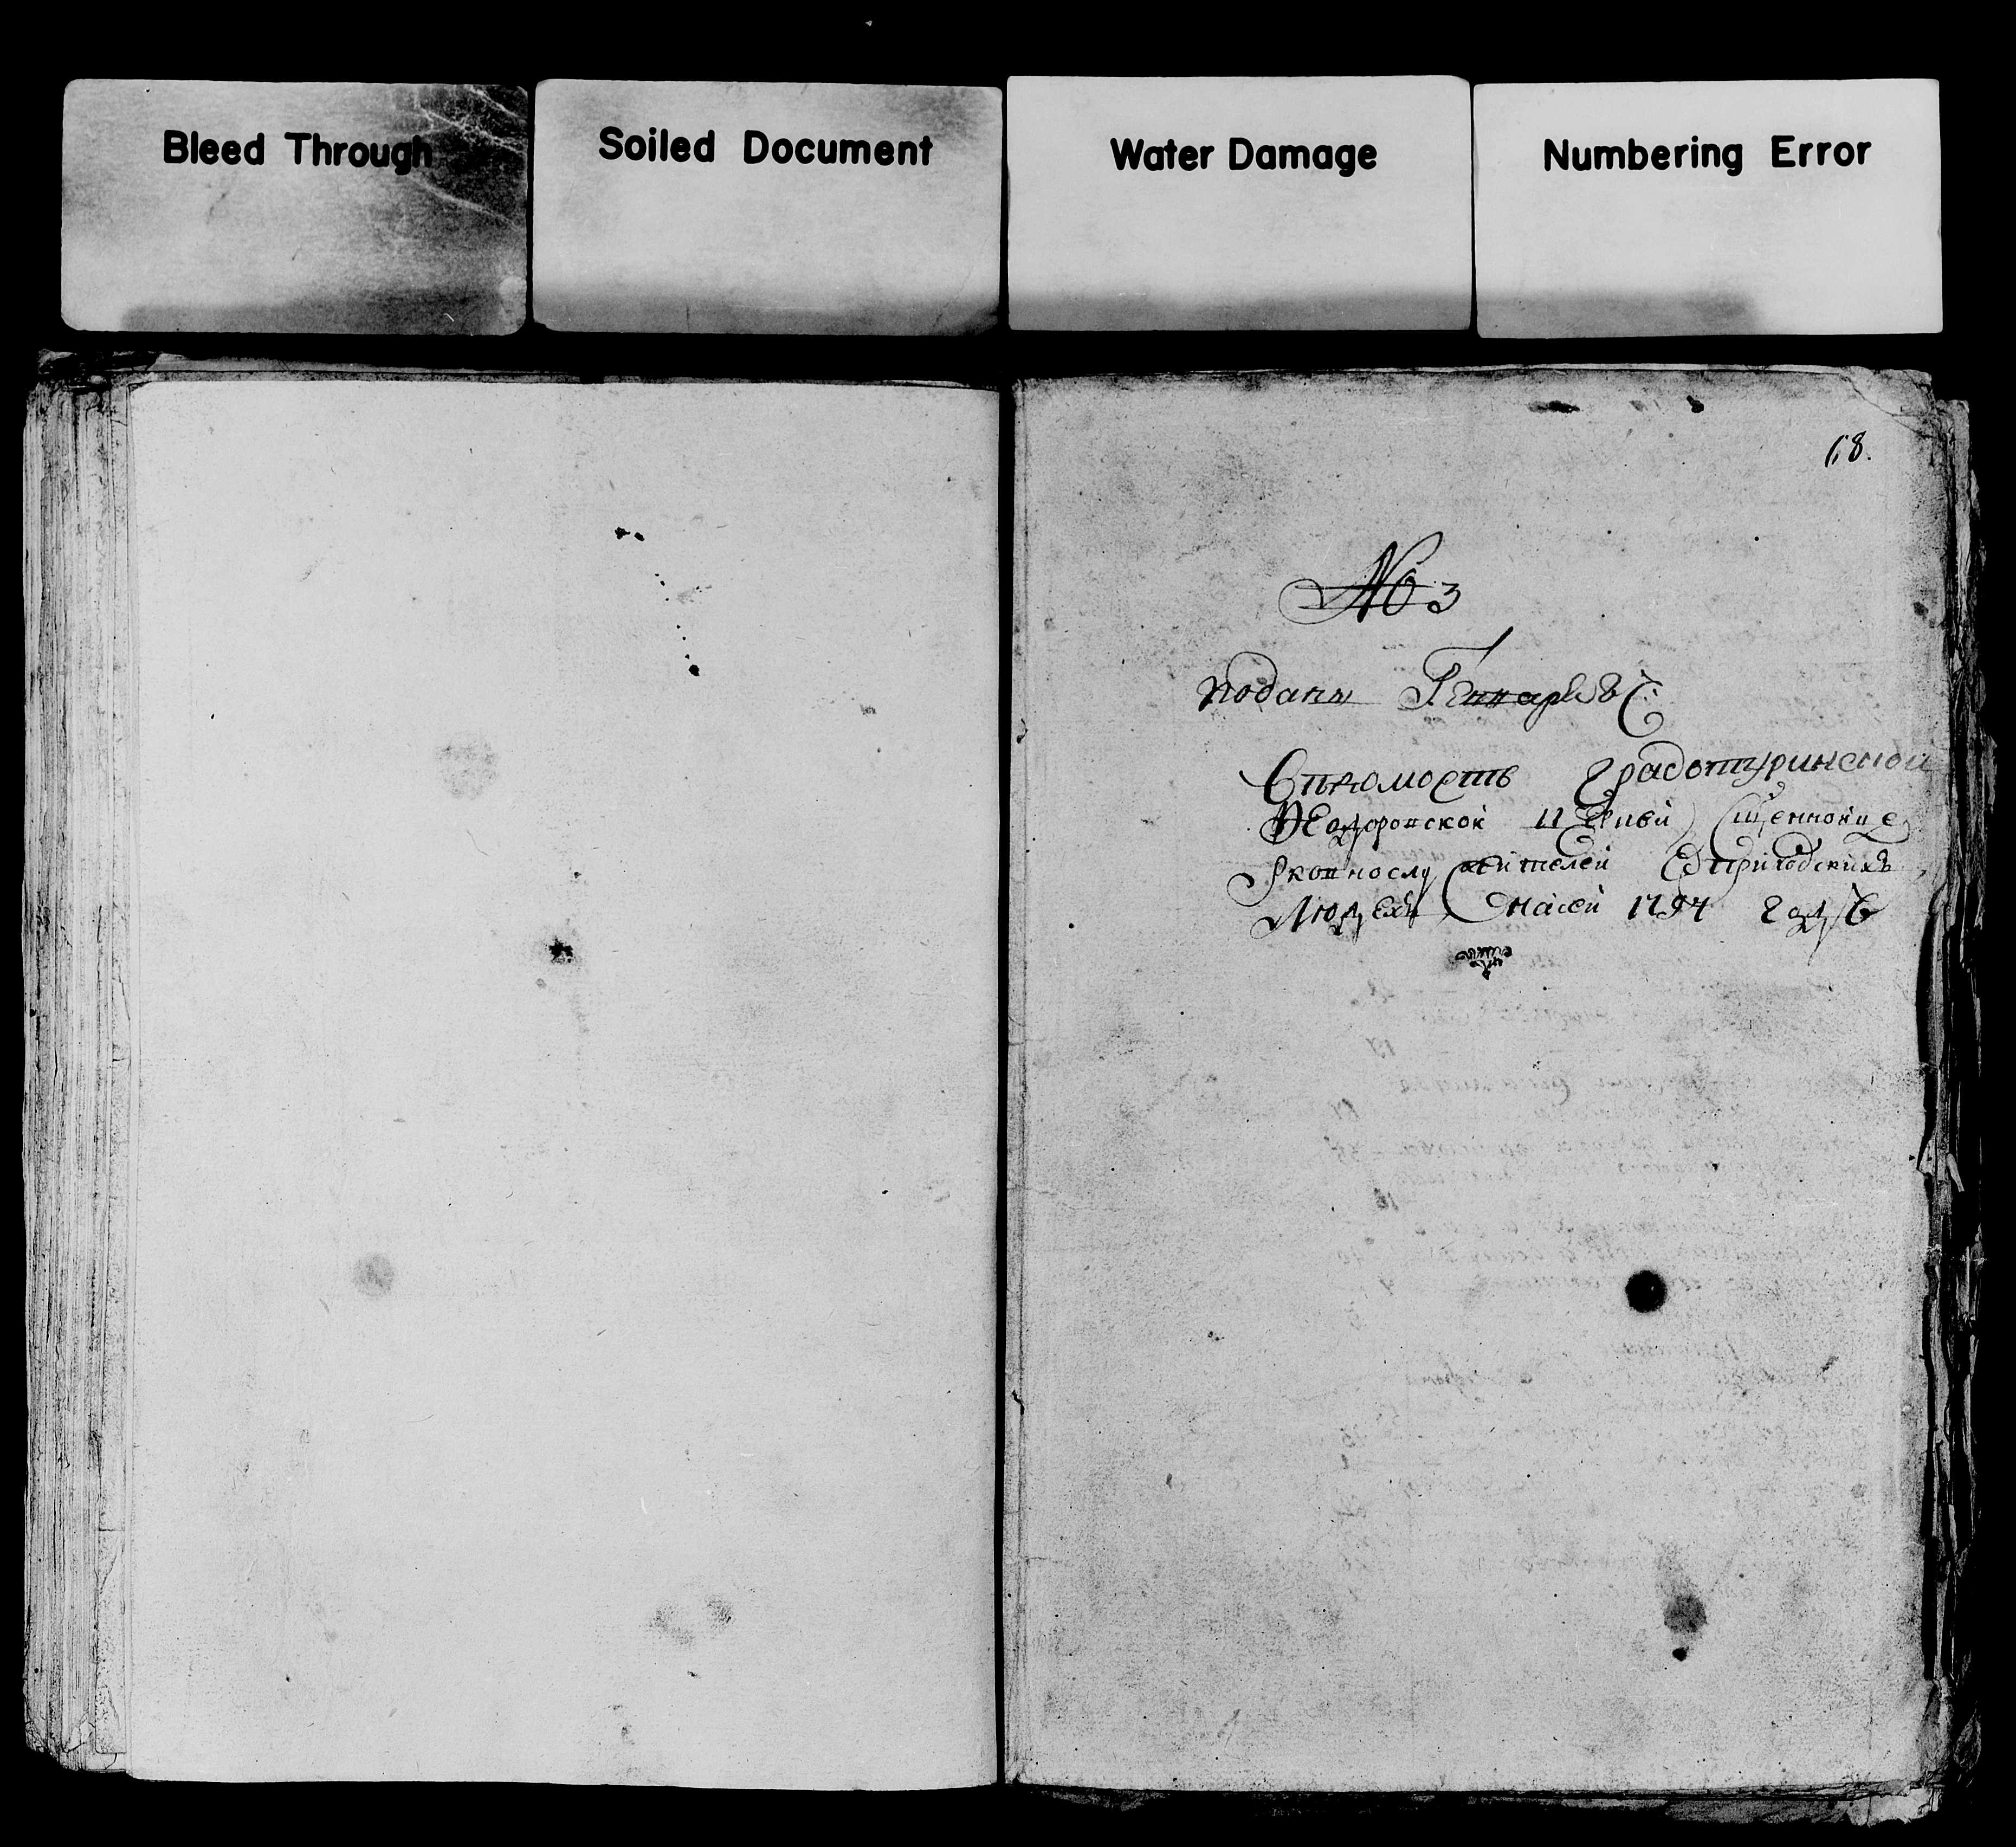 Bleed Through
Soiled Document
Water Damage
Numbering Error
68.
№ 3
подана Генваря 8
Ведомость градотуринской
Феодоровской церкви священноце
рковнослужителей Сприходскихъ
Людехъ 1794 году